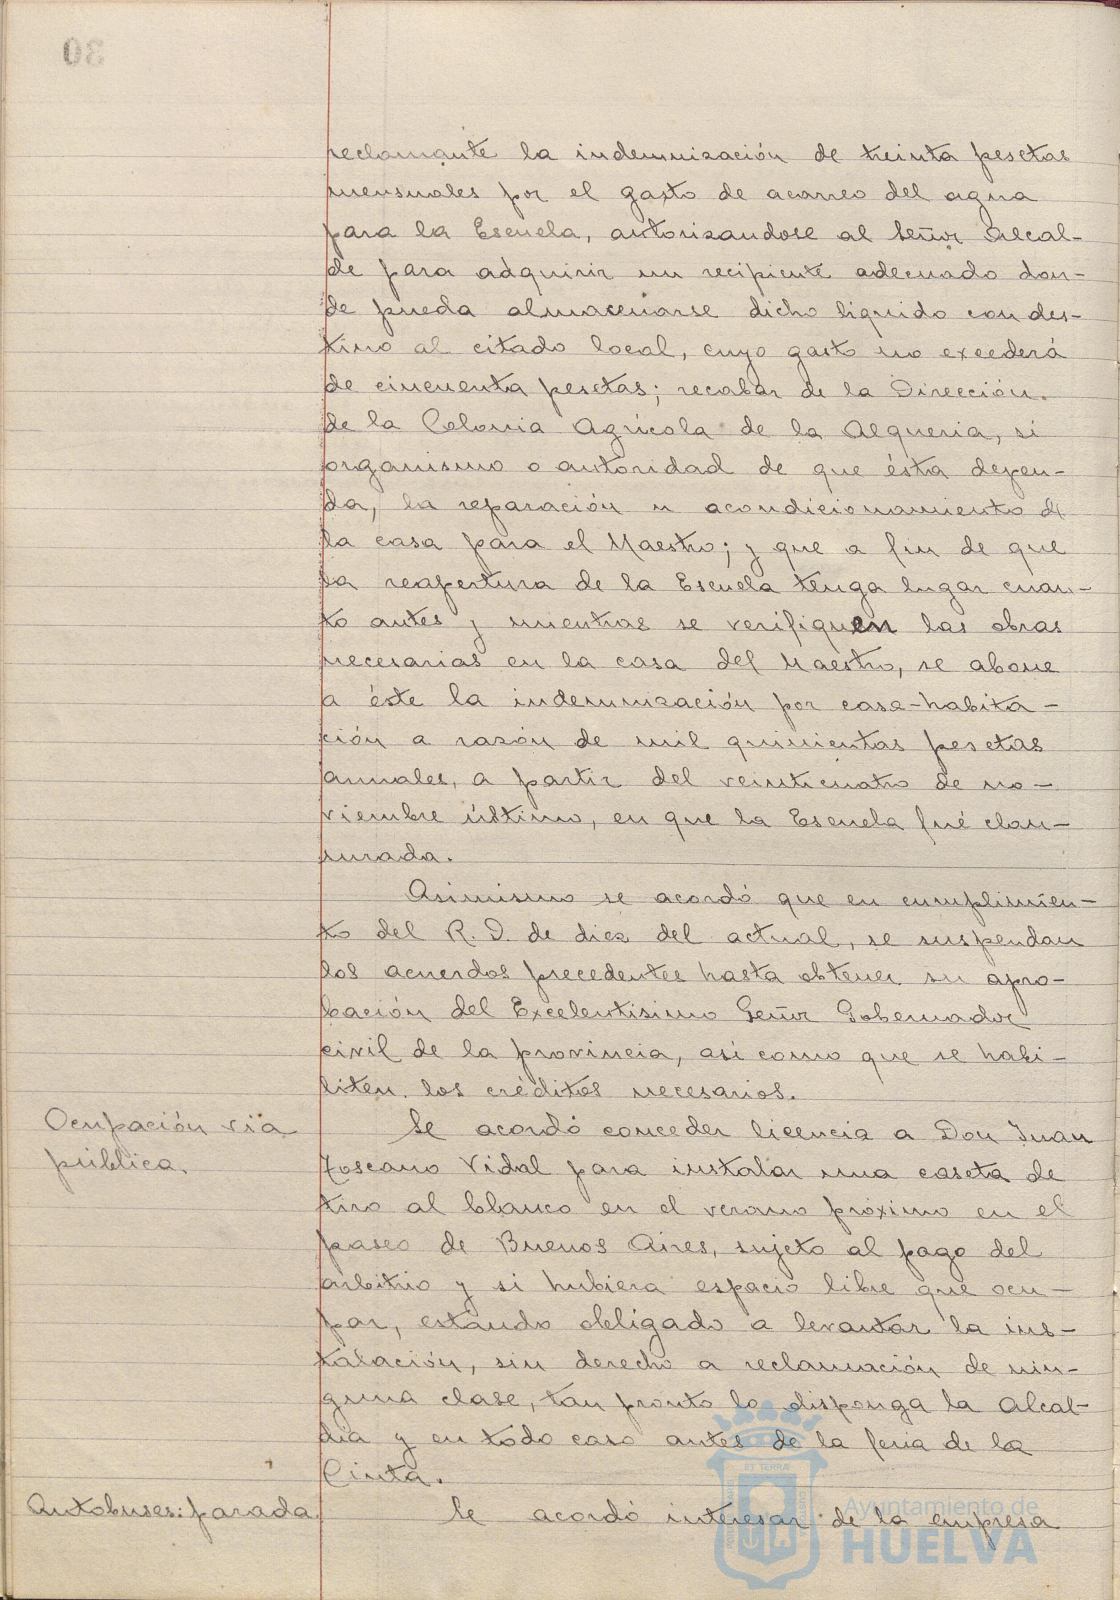 30
reclamante la indemnización de treinta pesetas
mensuales por el gasto de acarreo del agua
para la Escuela, autorizandose al Señor Alcal-
de para adquirir un recipiente adecuado don-
de pueda almacenarse dicho liquido con des-
tino al citado local, cuyo gasto no excederá
de cincuenta pesetas; recabar de la Dirección
de la Colonia Agrícola de la Alqueria, si
organismo o autoridad de que ésta depen-
da, la reparación u acondicionamiento de
la casa para el Maestro; y que a fin de que
la reapertura de la Escuela tenga lugar cuan-
to antes y mientras se verifiquen las obras
necesarias en la casa del Maestro, se abone
a éste la indemnización por casa-habita-
ción a razón de mil quinientas pesetas
anuales, a partir del veinticuatro de no-
viembre último, en que la Escuela fué clau-
surada.
Asimismo se acordó que en cumplimien-
to del R. D. de diez del actual, se suspendan
los acuerdos precedentes hasta obtener su apro-
bación del Excelentisimo Señor Gobernador
civil de la provincia, asi como que se habi-
liten los créditos necesarios.
Ocupación via
pública.
Se acordó conceder licencia a Don Juan
Toscano Vidal para instalar una caseta de
tiro al blanco en el verano próximo en el
paseo de Buenos Aires, sujeto al pago del
arbitrio y si hubiera espacio libre que ocu-
par, estando obligado a levantar la ins-
talación, sin derecho a reclamación de nin-
guna clase, tan pronto lo disponga la Alcal-
dia y en todo caso antes de la feria de la
Cinta.
Autobuses: parada
Se acordó interesar de la empresa
Ayuntamiento de
HUELVA